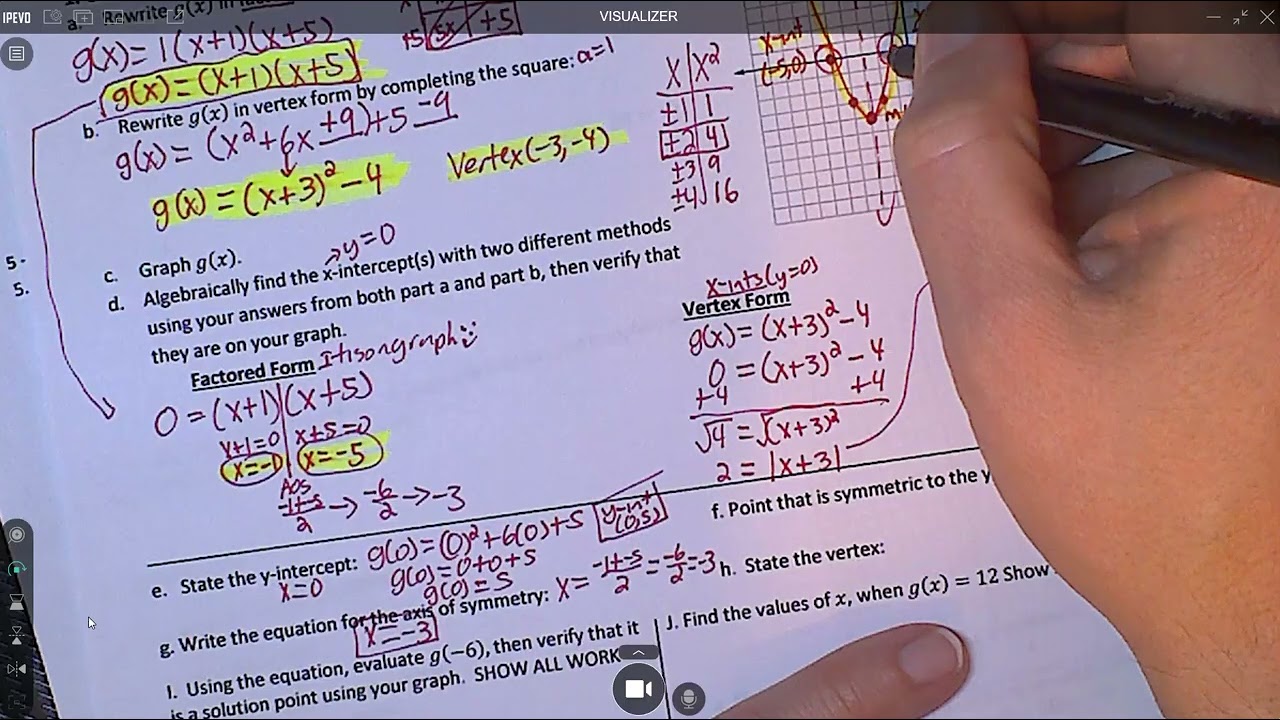 IPEVO
VISUALIZER
a. Rewrite g(x) in
g(x)=1(x+1)(x+5)
g(x)=(x+1)(x+5)
+5 5x +5
b. Rewrite g(x) in vertex form by completing the square: a=1
g(x)=(x²+6x +9)+5 -9
g(x)=(x+3)²-4
Vertex(-3,-4)
x | x²
±1 | 1
±2 | 4
±3 | 9
±4 | 16
x-int
(-5,0)
c. Graph g(x).
→y=0
d. Algebraically find the x-intercept(s) with two different methods
using your answers from both part a and part b, then verify that
they are on your graph.
It is on graph
Factored Form
0=(x+1)(x+5)
x+1=0 | x+5=0
x=-1 | x=-5
AOS
-1+-5/2 → -6/2 → -3
x-ints(y=0)
Vertex Form
g(x)=(x+3)²-4
0=(x+3)²-4
+4 +4
√4=√(x+3)²
2=|x+3|
5 -
5.
e. State the y-intercept: g(0)=(0)²+6(0)+5
x=0
g(0)=0+0+5
g(0)=5
y-int
(0,5)
f. Point that is symmetric to the y
g. Write the equation for the axis of symmetry: x= -1+-5/2 = -6/2 = -3
x=-3
h. State the vertex:
I. Using the equation, evaluate g(−6), then verify that it
is a solution point using your graph. SHOW ALL WORK
J. Find the values of x, when g(x) = 12 Show